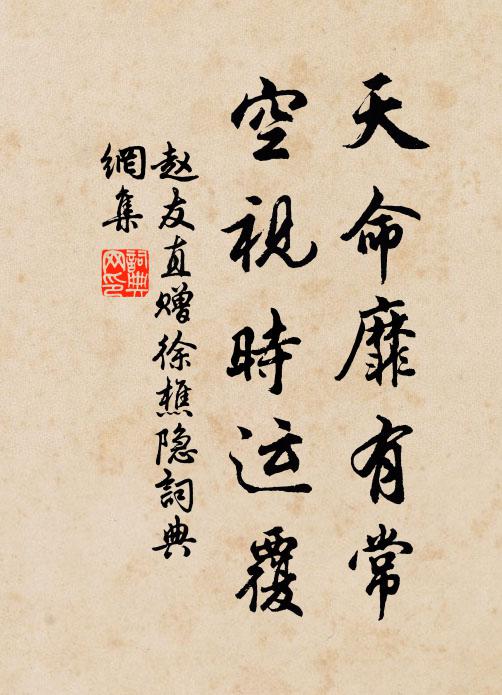 天命靡有常
空視時运覆
赵友直赠徐樵隐詞典
網集
詞典
网印